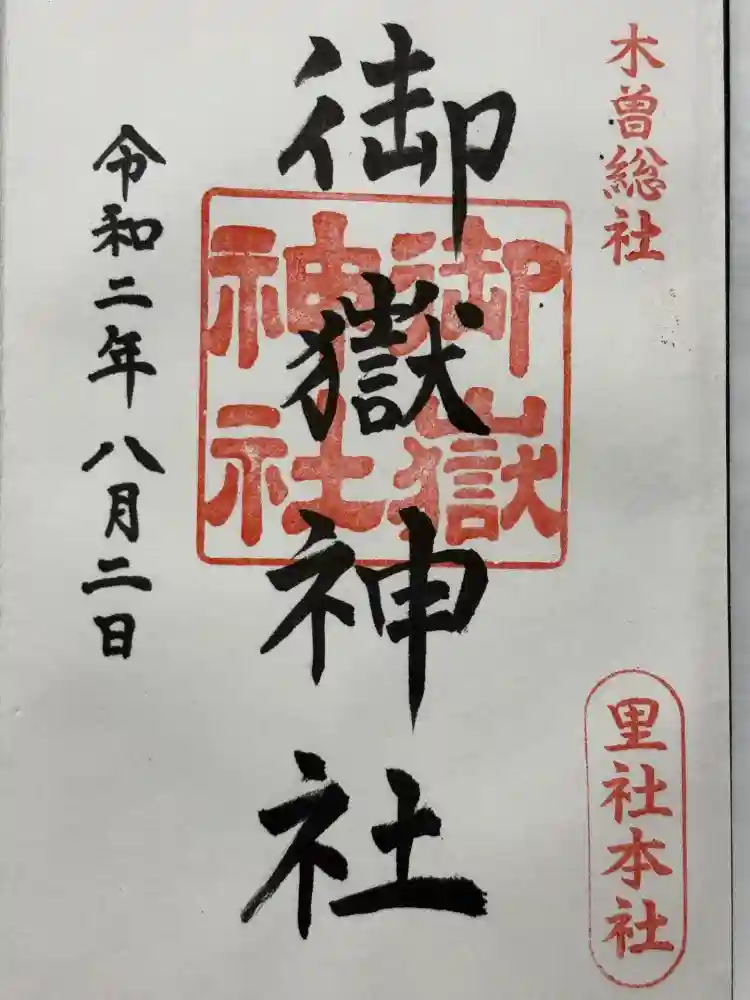 木曽総社
里社本社
御嶽神社
御嶽
神社
令和二年八月二日